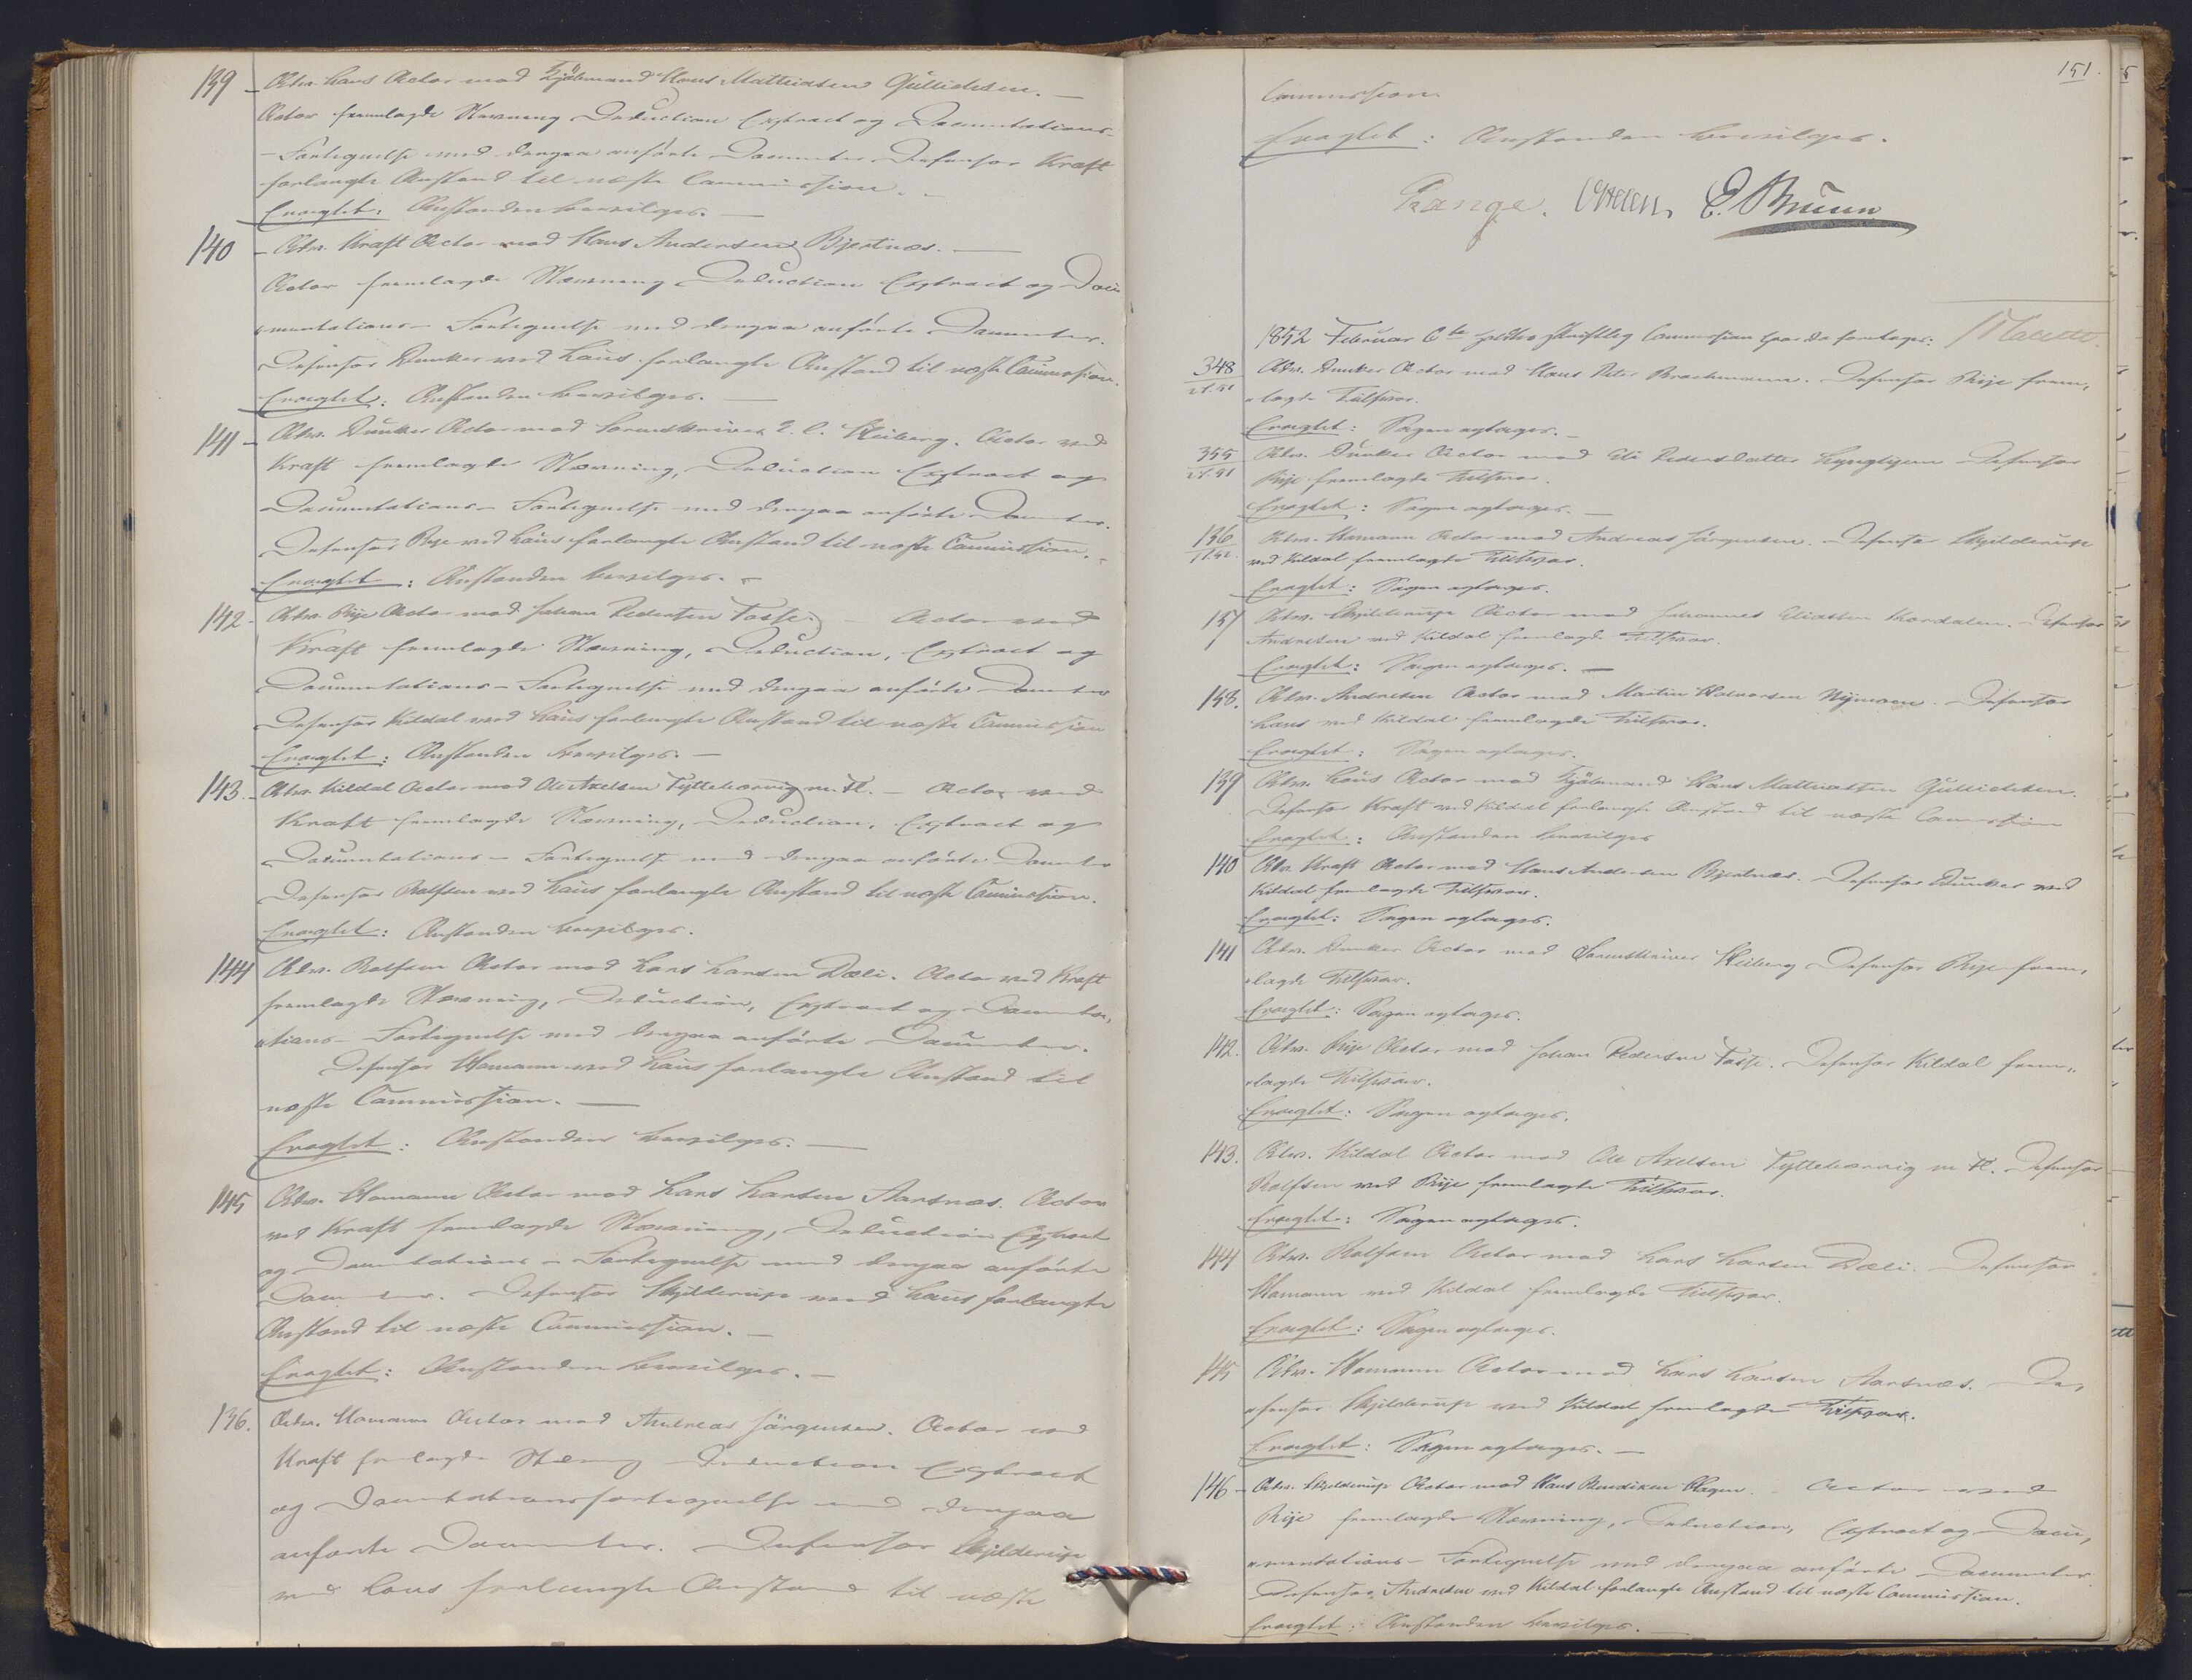 139 - Adv. Haus Actor mod Kjøbmand Hans Mathiasen Gullichsen. -
Actor fremlagde Stævning Deduction Extract og Documentations-
- Fortegnelse med derpaa anførte Documenter Defensor Kraft
forlangte Anstand til næste Commission. -
Eragtet: Anstanden bevilges. -
140 - Adv. Kraft Actor mod Hans Andersen Bjertnæs. -
Actor fremlagde Stævning Deduction Extract og Docu
mentations - Fortegnelse med derpaa anførte Documenter.
Defensor Dunker ved Haus forlangte Anstand til næste Commission.
Eragtet: Anstanden bevilges. -
141 - Adv. Dunker Actor mod Sorenskriver Heiberg. Actor ved
Kraft fremlagde Stævning, Deduction Extract og
Documentations - Fortegnelse med derpaa anførte Documenter.
Defensor Rije ved Haus forlangte Anstand til næste Commission. -
Eragtet: Anstanden bevilges. -
142 - Adv. Rije Actor mod Johan Pedersen Fosse. - Actor ved
Kraft fremlagde Stævning, Deduction, Extract og
Documentations - Fortegnelse med derpaa anførte Documenter
Defensor Kildal ved Haus forlangte Anstand til næste Commission
Eragtet: Anstanden bevilges. -
143 - Adv. Kildal Actor mod Ole Axelsen Tyttebærvig m. Fl. - Actor ved
Kraft fremlagde Stævning, Deduction, Extract og
Documentations - Fortegnelse med derpaa anførte Documenter
Defensor Rolfsen ved Haus forlangte Anstand til næste Commission.
Eragtet: Anstanden bevilges.
144 Adv. Rolfsen Actor mod Lars Larsen Dæli. Actor ved Kraft
fremlagde Stævning, Deduction, Extract og Documenta,
tions - Fortegnelse med derpaa anførte Documenter.
Defensor Homann ved Haus forlangte Anstand til
næste Commission. -
Eragtet: Anstanden bevilges. -
145 Adv. Homann Actor mod Lars Larsen Aarsnæs. Actor
ved Kraft fremlagde Stævning, Deduction Extract
og Documentations - Fortegnelse med derpaa anførte
Documenter. Defensor Hjelderup ved Haus forlangte
Anstand til næste Commission. -
Eragtet: Anstanden bevilges. -
136. Adv. Homann Actor mod Andreas Jørgensen. Actor ved
Kraft fremlagde Stævning Deduction Extract
og Documentationsfortegnelse med derpaa
anførte Documenter. Defensor Hjelderup
ved Haus forlangte Anstand til næste
151.
Commission
Eragtet: Anstanden bevilges.
E. Bruun
1852 Februar 6te holdtes skriftlig Commission hvorda foretoges:
348 Adv. Dunker Actor mod Hans Peter Brochmann. Defensor Rije frem,
lagde Tilsvar.
Eragtet: Sagen optages. -
355 Adv. Dunker Actor mod Eli Pedersdatter Defensor
Rije fremlagde Tilsvar.
Eragtet: Sagen optages. -
136 Adv. Homann Actor mod Andreas Jørgensen. - Defensor Hjelderup
ved Kildal fremlagde Tilsvar.
Eragtet: Sagen optages.
137 Adv. Hjelderup Actor mod Johannes Eliassen Kordalen. Defensor
Andresen ved Kildal fremlagde Tilsvar.
Eragtet: Sagen optages. -
138. Adv. Andresen Actor mod Martin Halvorsen Nymoen. Defensor
Haus ved Kildal fremlagde Tilsvar.
Eragtet: Sagen optages.
139 Adv. Haus Actor mod Kjøbmand Hans Mathiasen Gullichsen.
Defensor Kraft ved Kildal forlangte Anstand til næste Commission
Eragtet: Anstanden bevilges
140 Adv. Kraft Actor mod Hans Andersen Bjertnæs. Defensor Dunker ved
Kildal fremlagde Tilsvar.
Eragtet: Sagen optages.
141 Adv. Dunker Actor mod Sorenskriver Heiberg Defensor Rije frem,
lagde Tilsvar.
Eragtet: Sagen optages.
142. Adv. Rije Actor mod Johan Pedersen Fosse. Defensor Kildal frem,
lagde Tilsvar.
Eragtet: Sagen optages.
143. Adv. Kildal Actor mod Ole Axelsen Tyttebærvig m Fl. Defensor
Rolfsen ved Rije fremlagde Tilsvar.
Eragtet: Sagen optages.
144 Adv. Rolfsen Actor mod Lars Larsen Dæli. Defensor
Homann ved Kildal fremlagde Tilsvar.
Eragtet: Sagen optages.
145 Adv. Homann Actor mod Lars Larsen Aarsnæs. De,
fensor Hjelderup ved Kildal fremlagde Tilsvar.
Eragtet: Sagen optages. -
146 - Adv. Hjelderup Actor mod Hans Bendixen Hagen. Actor ved
Rije fremlagde Stævning, Deduction, Extract og Docu,
mentations - Fortegnelse med derpaa anførte Documenter.
Defensor Andresen ved Kildal forlangte Anstand til næste Commission.
Eragtet: Anstanden bevilges. -